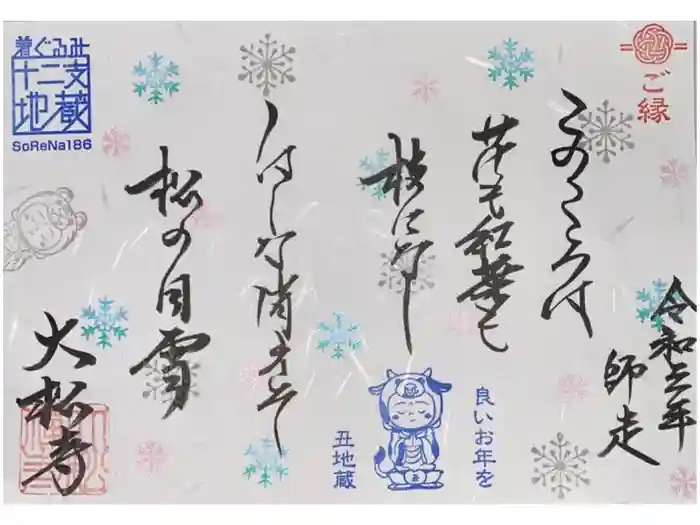 ご縁
令和二年
師走
このころは
花も紅葉も
枝になし
しはしな消えそ
松の白雪
大松寺
良いお年を
丑地蔵
着ぐるみ
十二支
地蔵
SoReNa186